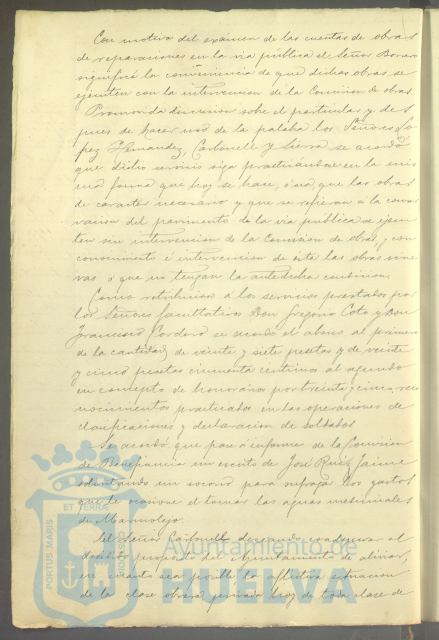 Con motivo del examen de las cuentas de obras
de reparaciones en la via pública el Señor Borrero
significó la conveniencia de que dichas obras se
ejecuten con la intervencion de la Comision de obras
Promovida discusion sobre el particular y des
pues de hacer uso de la palabra los Señores Lo
pez Hernandez, Carbonell y Sierra se acordó
que dicho servicio siga practicándose en la mis
ma forma que hoy se hace, ó sea que las obras
de caracter necesario y que se refieran á la conser
vacion del pavimento de la via pública se ejecu
ten sin intervencion de la Comision de obras, y con
conocimiento é intervencion de ésta las obras nue
vas ó que no tengan la antedicha condicion.
Como retribucion á los servicios prestados por
los Señores facultativos Don Gregorio Coto y Don
Francisco Cordero se acordó el abono al primero
de la cantidad de veinte y siete pesetas y de veinte
y cinco pesetas cincuenta centimos al segundo
en concepto de honorarios por treinta y cinco reco
nocimientos practicados en las operaciones de
clasificaciones y declaracion de soldados
Se acordó que pase á informe de la Comision
de Beneficencia un escrito de José Ruiz Jaime
solicitando un socorro para sufragar los gastos
que le ocasione el tomar las aguas medicinales
de Marmolejo.
El Señor Carbonell deseando coadyuvar al
decidido propósito del Ayuntamiento de aliviar,
en cuanto sea posible la aflictiva situacion
de la clase obrera privada hoy de toda clase de
PORTUS MARIS
ET TERRÆ
CUSTODIA
Ayuntamiento de
HUELVA